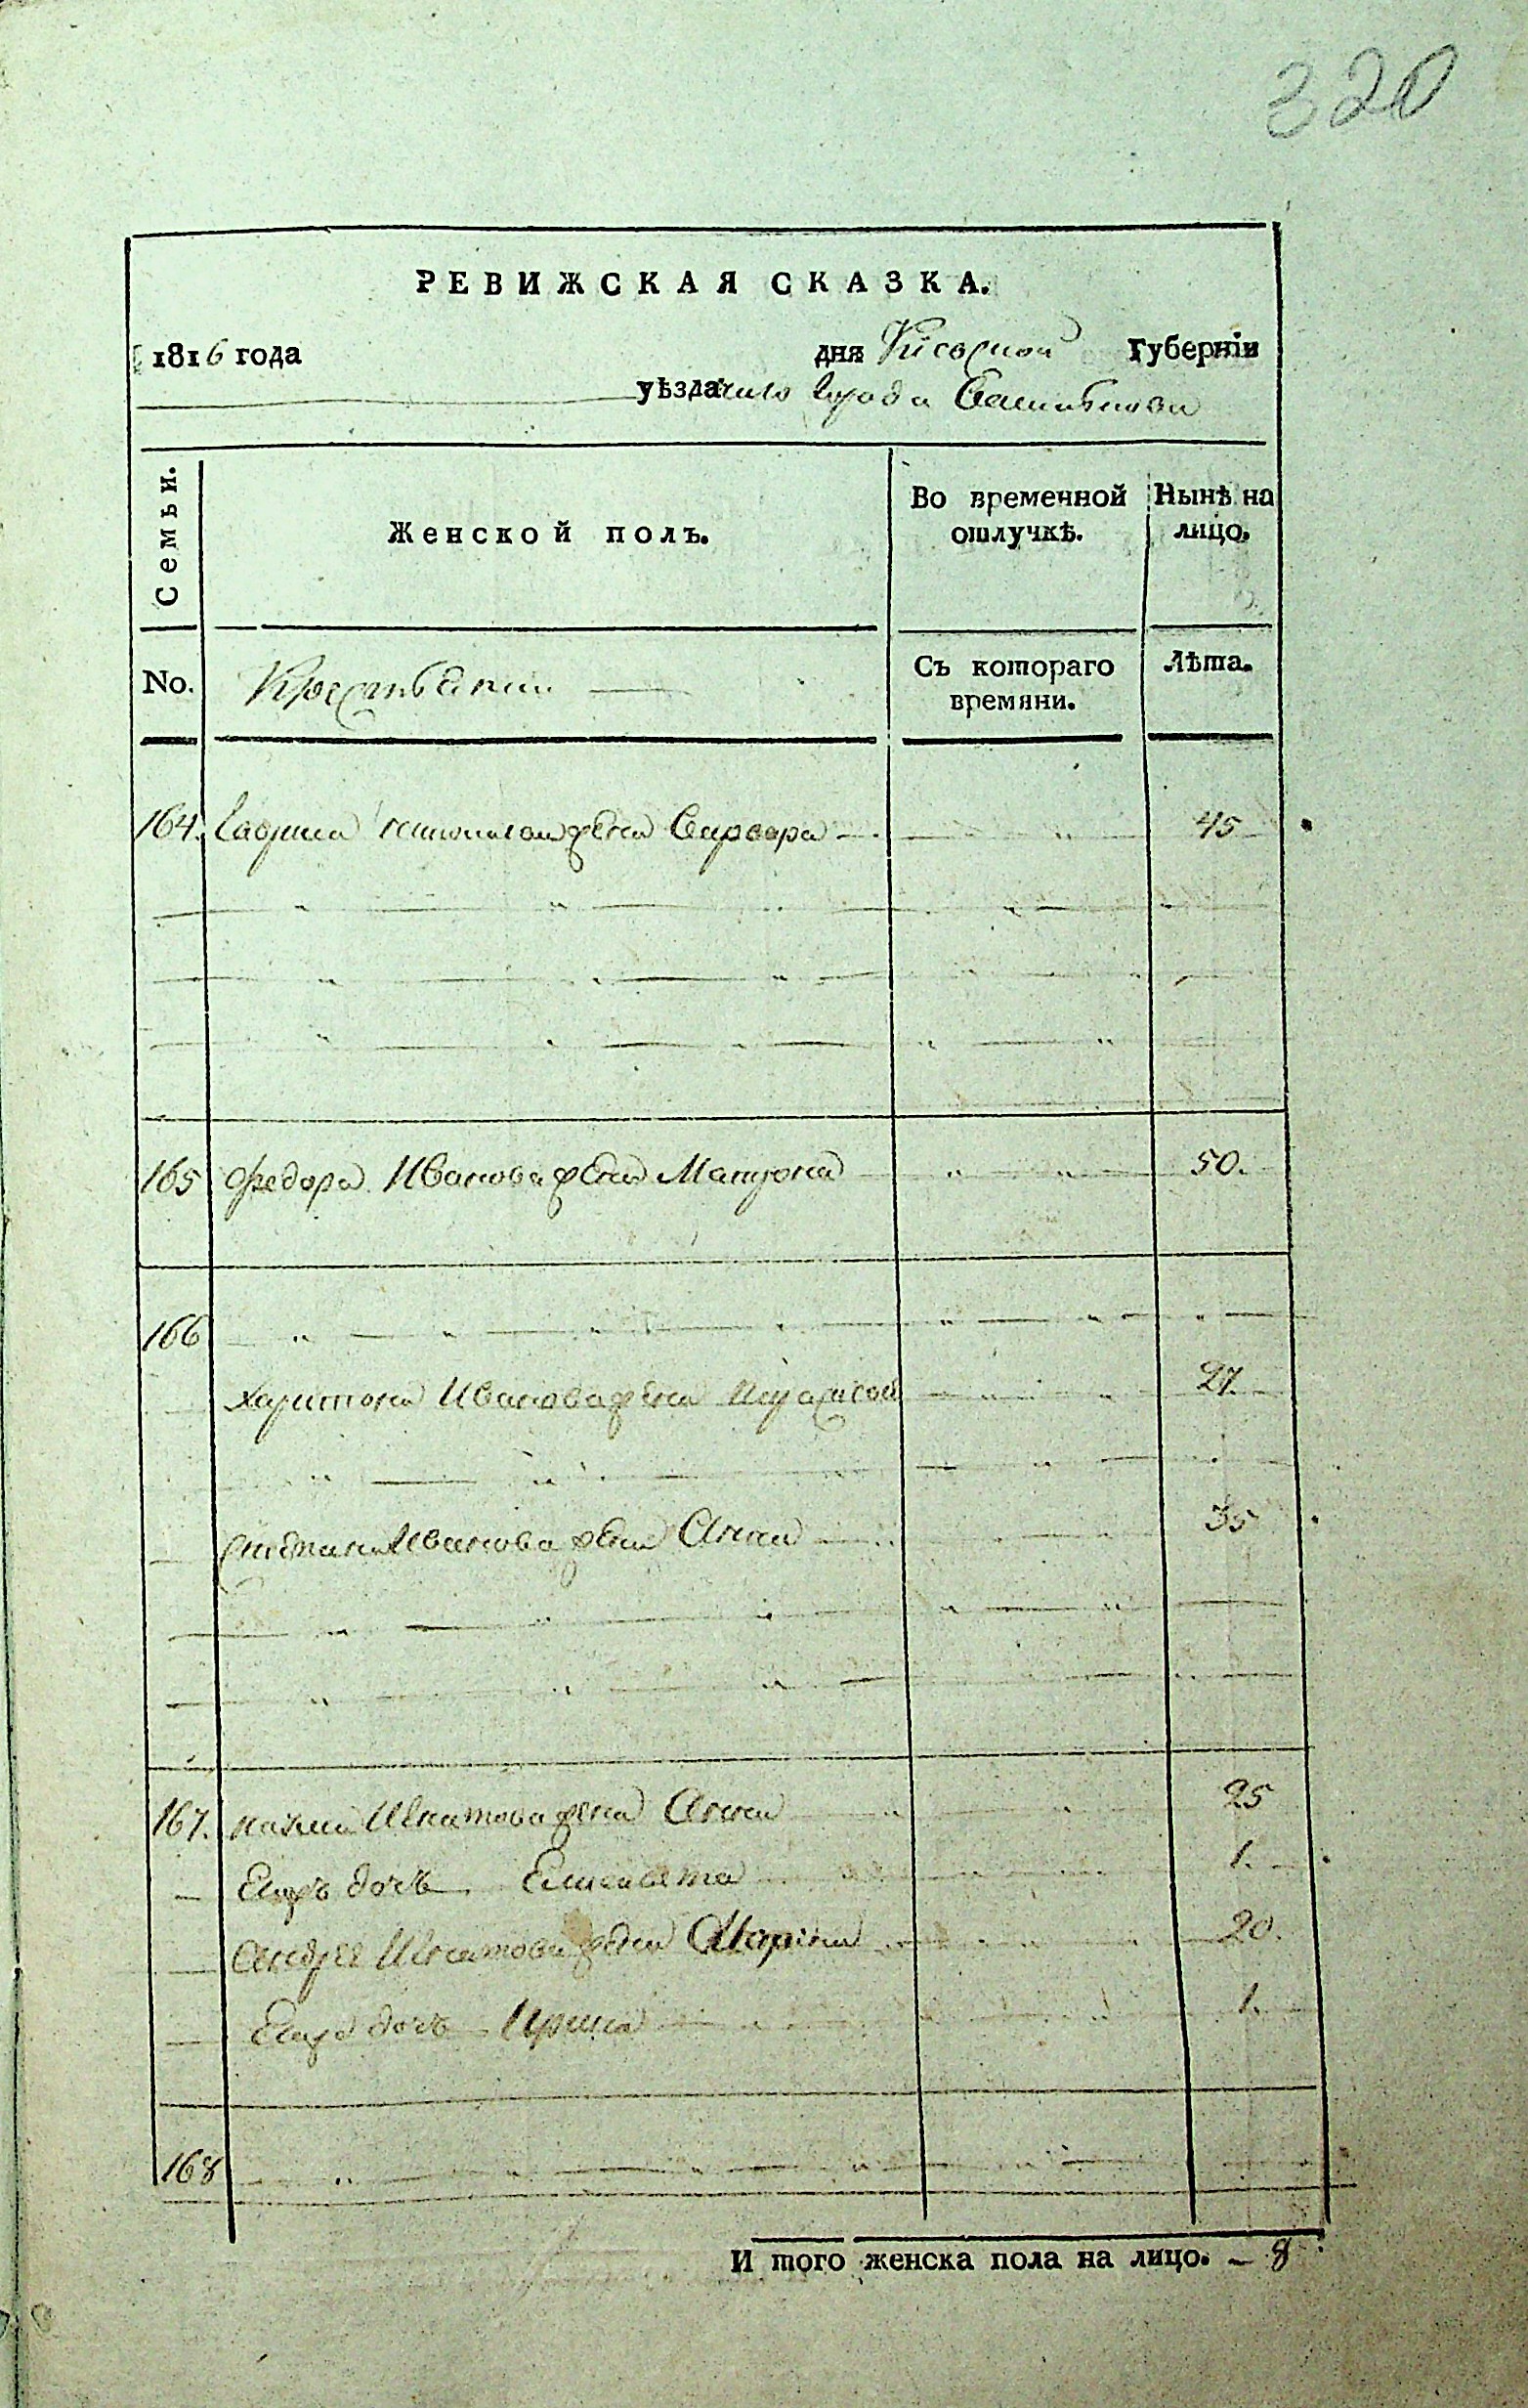 320
РЕВИЖСКАЯ СКАЗКА.
1816 года дня Киевской Губерніи
уѣзда города
Семьи. Женской полъ. Во временной отлучкѣ. Нынѣ на лицо.
No. Крестьянъ Съ котораго времяни. Лѣта.
164. Гаврила жена Варвара 45
165 Федора Иванова жена Матрона 50.
166
Харитона Иванова жена 27
Степана Иванова жена Анна 35
167. Козми Игнатова жена Анна 25
Ихъ дочь Елисавета 1.
Андрея Игнатова жена Марина 20.
Ихъ дочь Ирина 1.
168
И того женска пола на лицо. – 8